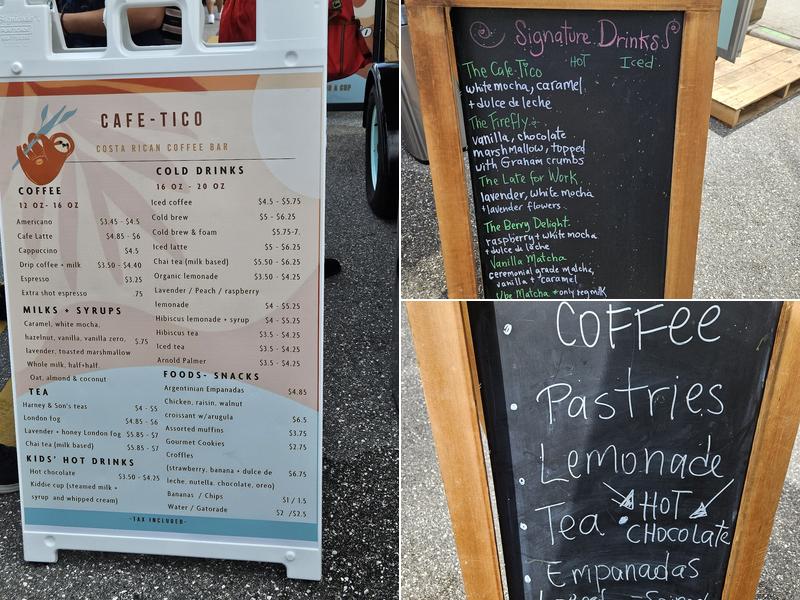 CAFE-TICO
COSTA RICAN COFFEE BAR
COFFEE
12 OZ- 16 OZ
Americano $3.45 - $4.5
Cafe Latte $4.85 - $6
Cappuccino $4.5
Drip coffee + milk $3.50 - $4.40
Espresso $3.25
Extra shot espresso .75
MILKS + SYRUPS
Caramel, white mocha,
hazelnut, vanilla, vanilla zero, $.75
lavender, toasted marshmallow
Whole milk, half+half.
Oat, almond & coconut
TEA
Harney & Son's teas $4 - $5
London fog $4.85 - $6
Lavender + honey London fog $5.85 - $7
Chai tea (milk based) $5.85 - $7
KIDS' HOT DRINKS
Hot chocolate $3.50 - $4.25
Kiddie cup (steamed milk +
syrup and whipped cream)
COLD DRINKS
16 OZ - 20 OZ
Iced coffee $4.5 - $5.75
Cold brew $5 - $6.25
Cold brew & foam $5.75-7.
Iced latte $5 - $6.25
Chai tea (milk based) $5.50 - $6.25
Organic lemonade $3.50 - $4.25
Lavender / Peach / raspberry
lemonade $4 - $5.25
Hibiscus lemonade + syrup $4 - $5.25
Hibiscus tea $3.5 - $4.25
Iced tea $3.5 - $4.25
Arnold Palmer $3.5 - $4.25
FOODS- SNACKS
Argentinian Empanadas $4.85
Chicken, raisin, walnut
croissant w/arugula $6.5
Assorted muffins $3.75
Gourmet Cookies $2.75
Croffles
(strawberry, banana + dulce de $6.75
leche, nutella, chocolate, oreo)
Bananas / Chips $1 / 1.5
Water / Gatorade $2 /$2.5
-TAX INCLUDED-
Signature Drinks
HOT Iced
The Cafe-Tico
white mocha, caramel
+ dulce de leche
The Firefly
vanilla, chocolate
marshmallow, topped
with Graham crumbs
The Late for Work
lavender, white mocha
+ lavender flowers
The Berry Delight
raspberry + white mocha
+ dulce de leche
Vanilla Matcha
ceremonial grade matcha,
vanilla + caramel
Ube Matcha + only reg milk
COFFee
Pastries
Lemonade
HOT
Tea CHOCOLATE
Empanadas